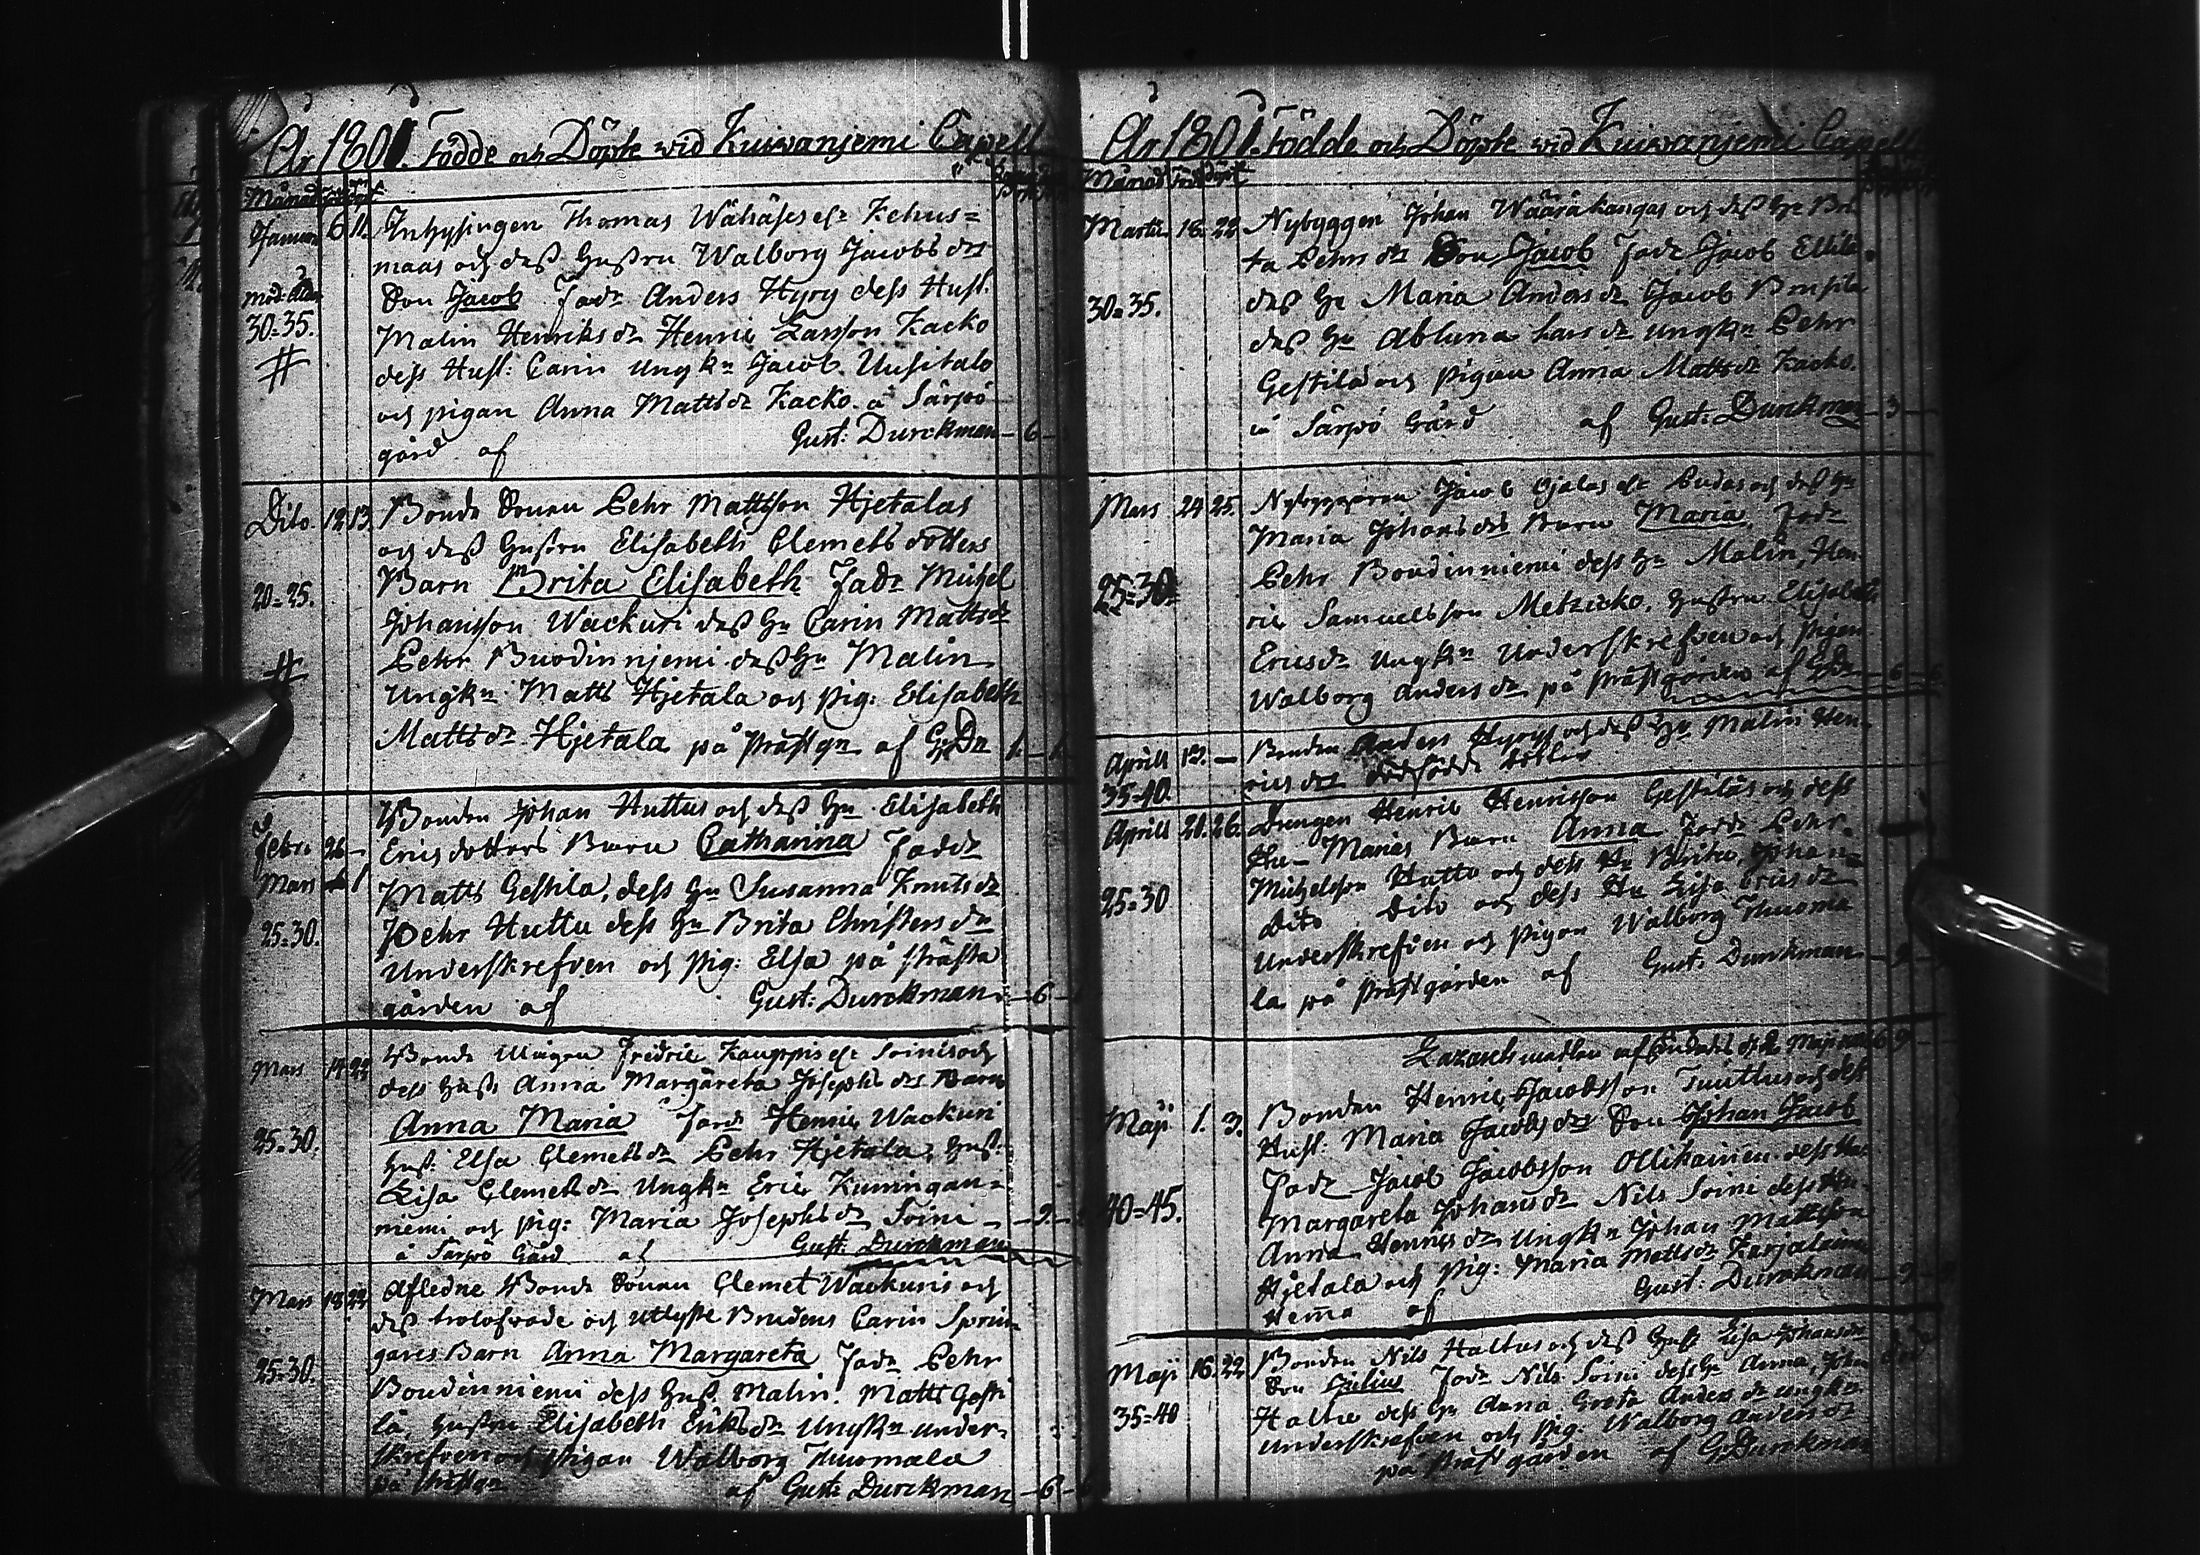 År 1801. Födde och Döpte wid Kuiwaniemi Capell
Månad
Januari 6 11. Inhysingen Thomas Wähäses el: Kehus=
maas och dess Hustru Walborg Jacobs dr
Son Jacob Fadr Anders Hyry dess Hust.
Mod: Ålder 30=35. Malin Henriks dr Henric Larsson Kacko
# dess Hust: Carin Ungkn Jacob Uusitalo
och pigan Anna Matts dr Kacko å Särpö
gård af Gust: Durckman 6
Dito 12 13. Bonde Sonen Pehr Mattsson Hjetalas
och dess Hustru Elisabeth Clemets dotters
20=25. Barn Brita Elisabeth Fadr Michel
Johansson Wackuri dess Hu Carin Matts dr
# Pehr Buodinnjemi dess Hu Malin
Ungkn Matts Hjetala och pig: Elisabeth
Matts dr Hjetala på Prästgn af G: Dn 1
Febr. 26 Bonden Johan Huttus och dess Hu Elisabeth
Mars 1 Erics dotters Barn Catharina Faddr
Matts Gestila, dess Hu Susanna Knuts dr
25=30. Pehr Huttu dess Hu Brita Christers dr
Underskrefven och pig: Elsa på Prästa
gården af Gust: Durckman 6
Mars 14 22 Bonde Mågen Fredric Kauppis el: Soinis och
dess Hust: Anna Margareta Josephs dr Barn
Anna Maria Fadr Henric Wackuri
25=30. Hust: Elsa Clemets dr Pehr Hjetala, Hust:
Lisa Clemets dr Ungkn Eric Kuningan=
niemi och pig: Maria Josephs dr Soini 9
å Särpö Gård af Gust: Durckman
Mars 18 22 Afledne Bonde Sonen Clemet Wackuris och
dess trolofwade och utlyste Brudens Carin Sprin
25=30. gares Barn Anna Margareta Fadr Pehr
Boudinniemi dess Hust. Malin. Matts Gesti
la, Hustru Elisabeth Eriks dr Ungkn under=
skrefven och pigan Walborg Thuomala
på Prästgn af Gust: Durckman 6
År 1801. Födde och Döpte wid Kuiwaniemi Capell
Månad Född Döpt
Martii 16. 22 Nybyggen Johan Wääräkangas och dess Hu Bri
ta Pehrs dr Son Jacob Fadr Jacob Ellilä
30=35. dess Hu Maria Anders dr Jacob Bonsila
dess Hu Abluna Lars dr Ungkn Pehr
Gestilä och Pigan Anna Matts dr Kacko.
å Särpö Gård af Gust: Durckman 3
Mars 24 25. Nybyggaren Jacob Ojalas el: Pudas och dess Hu
Maria Johans dr Barn Maria Fadr
25=30. Pehr Boudinniemi dess Hu Malin, Hen
ric Samuelsson Metzicko, Hustru Elisabeth
Erics dr Ungkn Underskrefven och Pigan
Walborg Anders dr på Prästgården af G: Dn 6
Aprill 12. Bonden Anders Hyrys och dess Hu Malin Hen
35=40. rics dr dödfödde dotter
Aprill 20. 26. Drengen Henric Henricsson Gestiläs och dess
Hu Marias Barn Anna Fadr Pehr
25=30 Michelsson Huttu och dess Hu Brita, Johan
Dito Dito och dess Hu Lisa Erics dr
Underskrefven och pigan Walborg Thuoma
la på Prästgården af Gust: Durckman 9
Maji 1. 3. Bonden Henric Jacobsson Tuuttus och dess
Hust. Maria Jacobs dr Son Johan Jacob
Fadr Jacob Jacobsson Ollikainen dess Hu
40=45. Margareta Johans dr Nils Soini dess Hu
Anna Henrics dr Ungkn Johan Mattsson
Hjetala och pig: Maria Matts dr Karjalainen
Hemma af Gust: Durckman 9
Maji 16. 22 Bonden Nils Haltus och dess Hust Lisa Johans dr
Son Julius Fadr Nils Soini dess Hu Anna, Johan
35=40 Haltu dess Hu Anna Greta Anders dr Ungkn
Underskrefven och pig: Walborg Anders dr
på Prästgården af G: Durckman